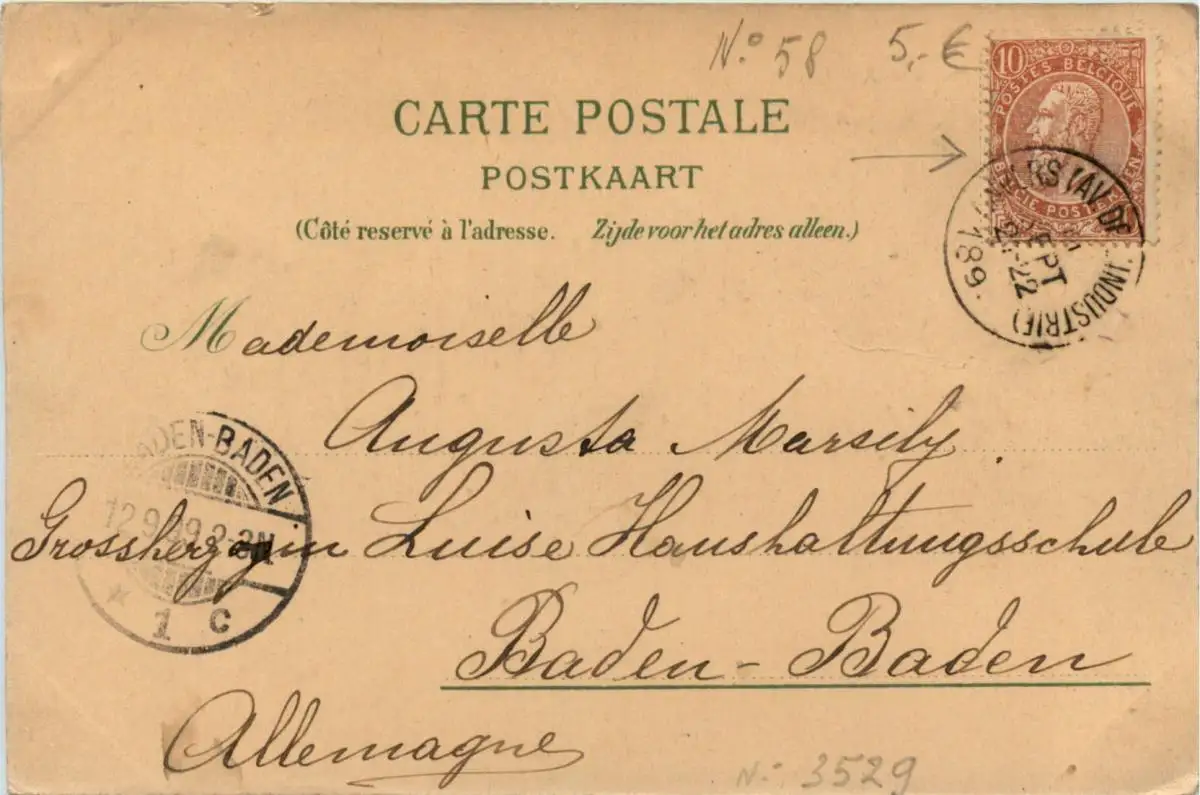 N.° 58 5,- €
10
POSTES BELGIQUE
BELGIE POSTERIJEN
CARTE POSTALE
POSTKAART
(Côté reservé à l'adresse. Zijde voor het adres alleen.)
RS (AV. DE L'INDUSTRIE)
SEPT
189
Mademoiselle
Augusta Marsily.
BADEN-BADEN
12.9.99.2-3N.
* 1 C
Grossherzogin Luise Haushaltungsschule
Baden-Baden
Allemagne
N.° 3529